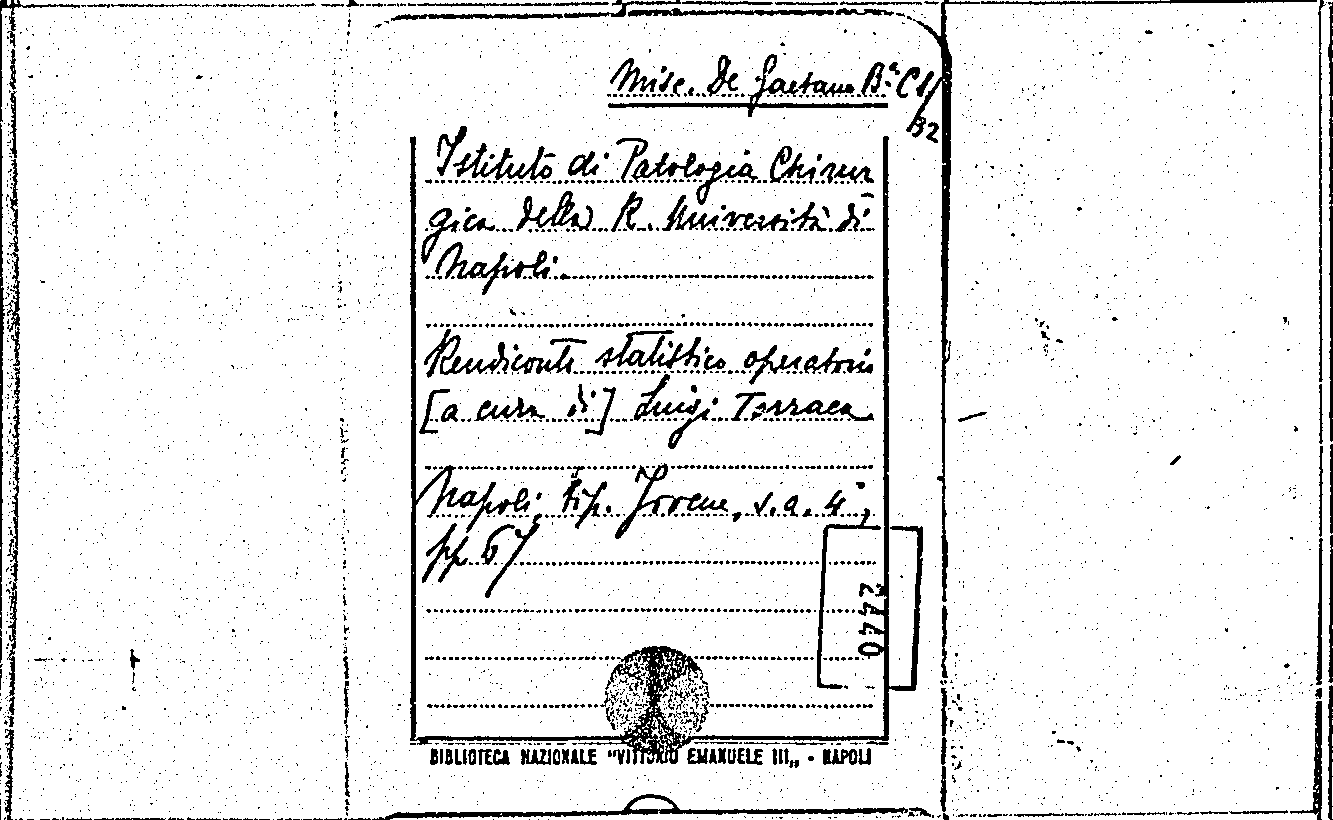 Misc. De Gaetano B.ª C1/
B2
Istituto di Patologia Chirur
gica della R. Università di
Napoli.
Rendiconto statistico operatorio
[a cura di] Luigi Torraca
Napoli, tip. Jovene, s.a. 4°,
pp 67
2440
BIBLIOTECA NAZIONALE "VITTORIO EMANUELE III„ - NAPOLI